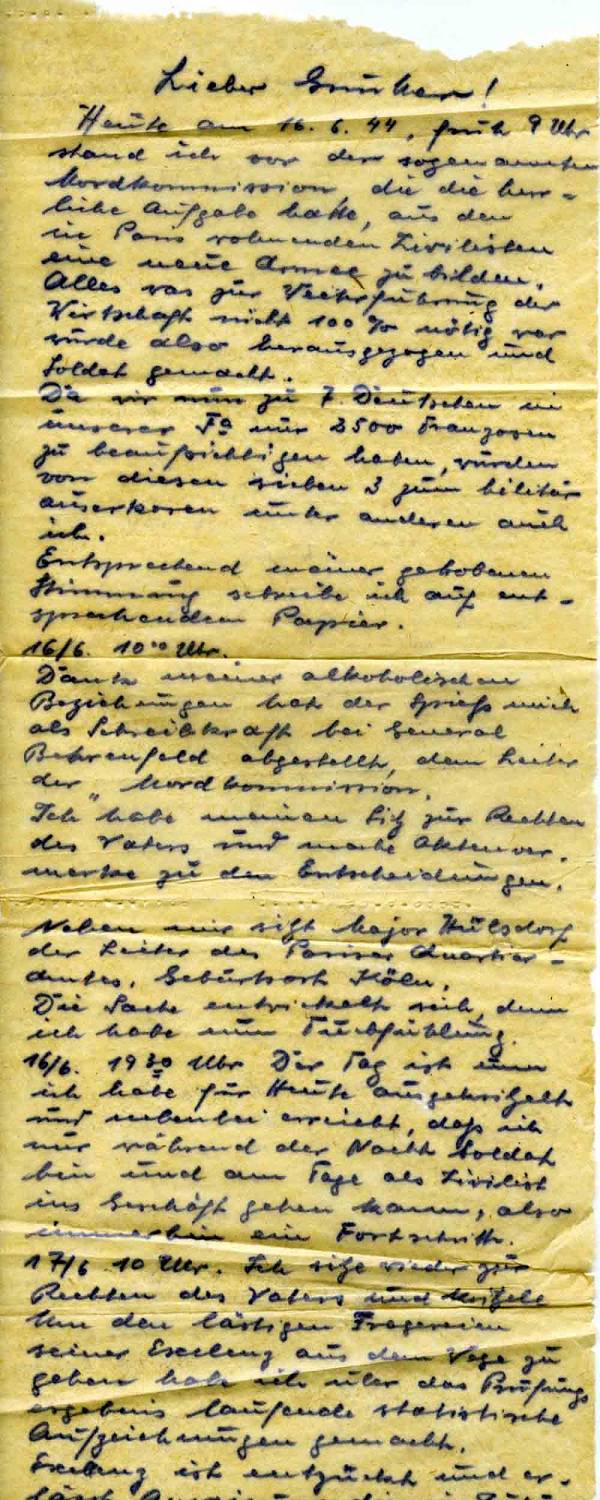 Lieber Günther!
Heute am 16. 6. 44, früh 9 Uhr
stand ich vor der sogenannten
Mordkommission die die herr-
liche Aufgabe hatte, aus den
in Paris wohnenden Zivilisten
eine neue Armee zu bilden.
Alles was zur Weiterführung der
Wirtschaft nicht 100 % nötig war
wurde also herausgezogen und
Soldat gemacht.
Da wir nun zu 7 Deutschen in
unserer Fa nur 2500 Franzosen
zu beaufsichtigen haben, wurden
von diesen sieben 3 zum Militär
auserkoren unter anderen auch
ich.
Entsprechend meiner gehobenen
Stimmung schreibe ich auf ent-
sprechendem Papier.
16/6. 10°° Uhr.
Dank meiner alkoholischen
Beziehungen hat der Spieß mich
als Schreibkraft bei General
Behrenfeld abgestellt, dem Leiter
der „Mordkommission.
Ich habe meinen Sitz zur Rechten
des Vaters und mache Aktenver-
merke zu den Entscheidungen.
Neben mir sitzt Major Hülsdorf
der Leiter des Pariser Quartier-
amtes, Geburtsort Köln.
Die Sache entwickelt sich, denn
ich habe nun Tuchfühlung.
16/6. 19 30 Uhr Der Tag ist um
ich habe für Heute ausgekritzelt
und nebenbei erreicht, daß ich
nur während der Nacht Soldat
bin und am Tage als Zivilist
ins Geschäft gehen kann, also
immerhin ein Fortschritt.
17/6 10 Uhr. Ich sitze wieder zur
Rechten des Vaters und kritzele
Um den lästigen Fragereien
seiner Exelenz aus dem Wege zu
gehen habe ich über das Prüfungs
ergebnis laufende statistische
Aufzeichnungen gemacht.
Exelenz ist entzückt und er-